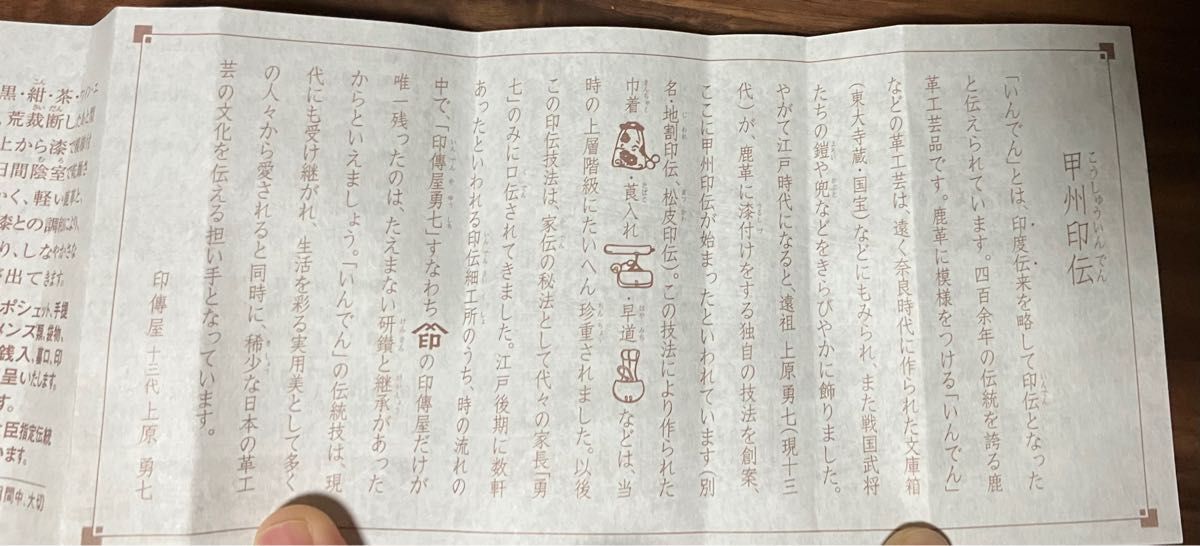 甲州印伝
「いんでん」とは、印度伝来を略して印伝となった
と伝えられています。四百余年の伝統を誇る鹿
革工芸品です。鹿革に模様をつける「いんでん」
などの革工芸は、遠く奈良時代に作られた文庫箱
(東大寺蔵・国宝)などにもみられ、また戦国武将
たちの鎧や兜などをきらびやかに飾りました。
やがて江戸時代になると、遠祖 上原勇七(現十三
代)が、鹿革に漆付けをする独自の技法を創案、
ここに甲州印伝が始まったといわれています(別
名・地割印伝、松皮印伝)。この技法により作られた
巾着・莨入れ・早道などは、当
時の上層階級にたいへん珍重されました。以後
この印伝技法は、家伝の秘法として代々の家長「勇
七」のみに口伝されてきました。江戸後期に数軒
あったといわれる印伝細工所のうち、時の流れの
中で、「印傳屋勇七」すなわち印の印傳屋だけが
唯一残ったのは、たえまない研鑽と継承があった
からといえましょう。「いんでん」の伝統技は、現
代にも受け継がれ、生活を彩る実用美として多く
の人々から愛されると同時に、稀少な日本の革工
芸の文化を伝える担い手となっています。
印傳屋 十三代 上原 勇七
黒・紺・茶・ワイン・エ
荒裁断した
上から漆で
日間陰室で
かく、軽い
漆との調和により、
り、しなやかさな
が出てきます。
ポシェット、手提
メンズ類、袋物、
銭入、蟇口、印
呈いたします。
す。
臣指定伝統
います。
期間中、大切